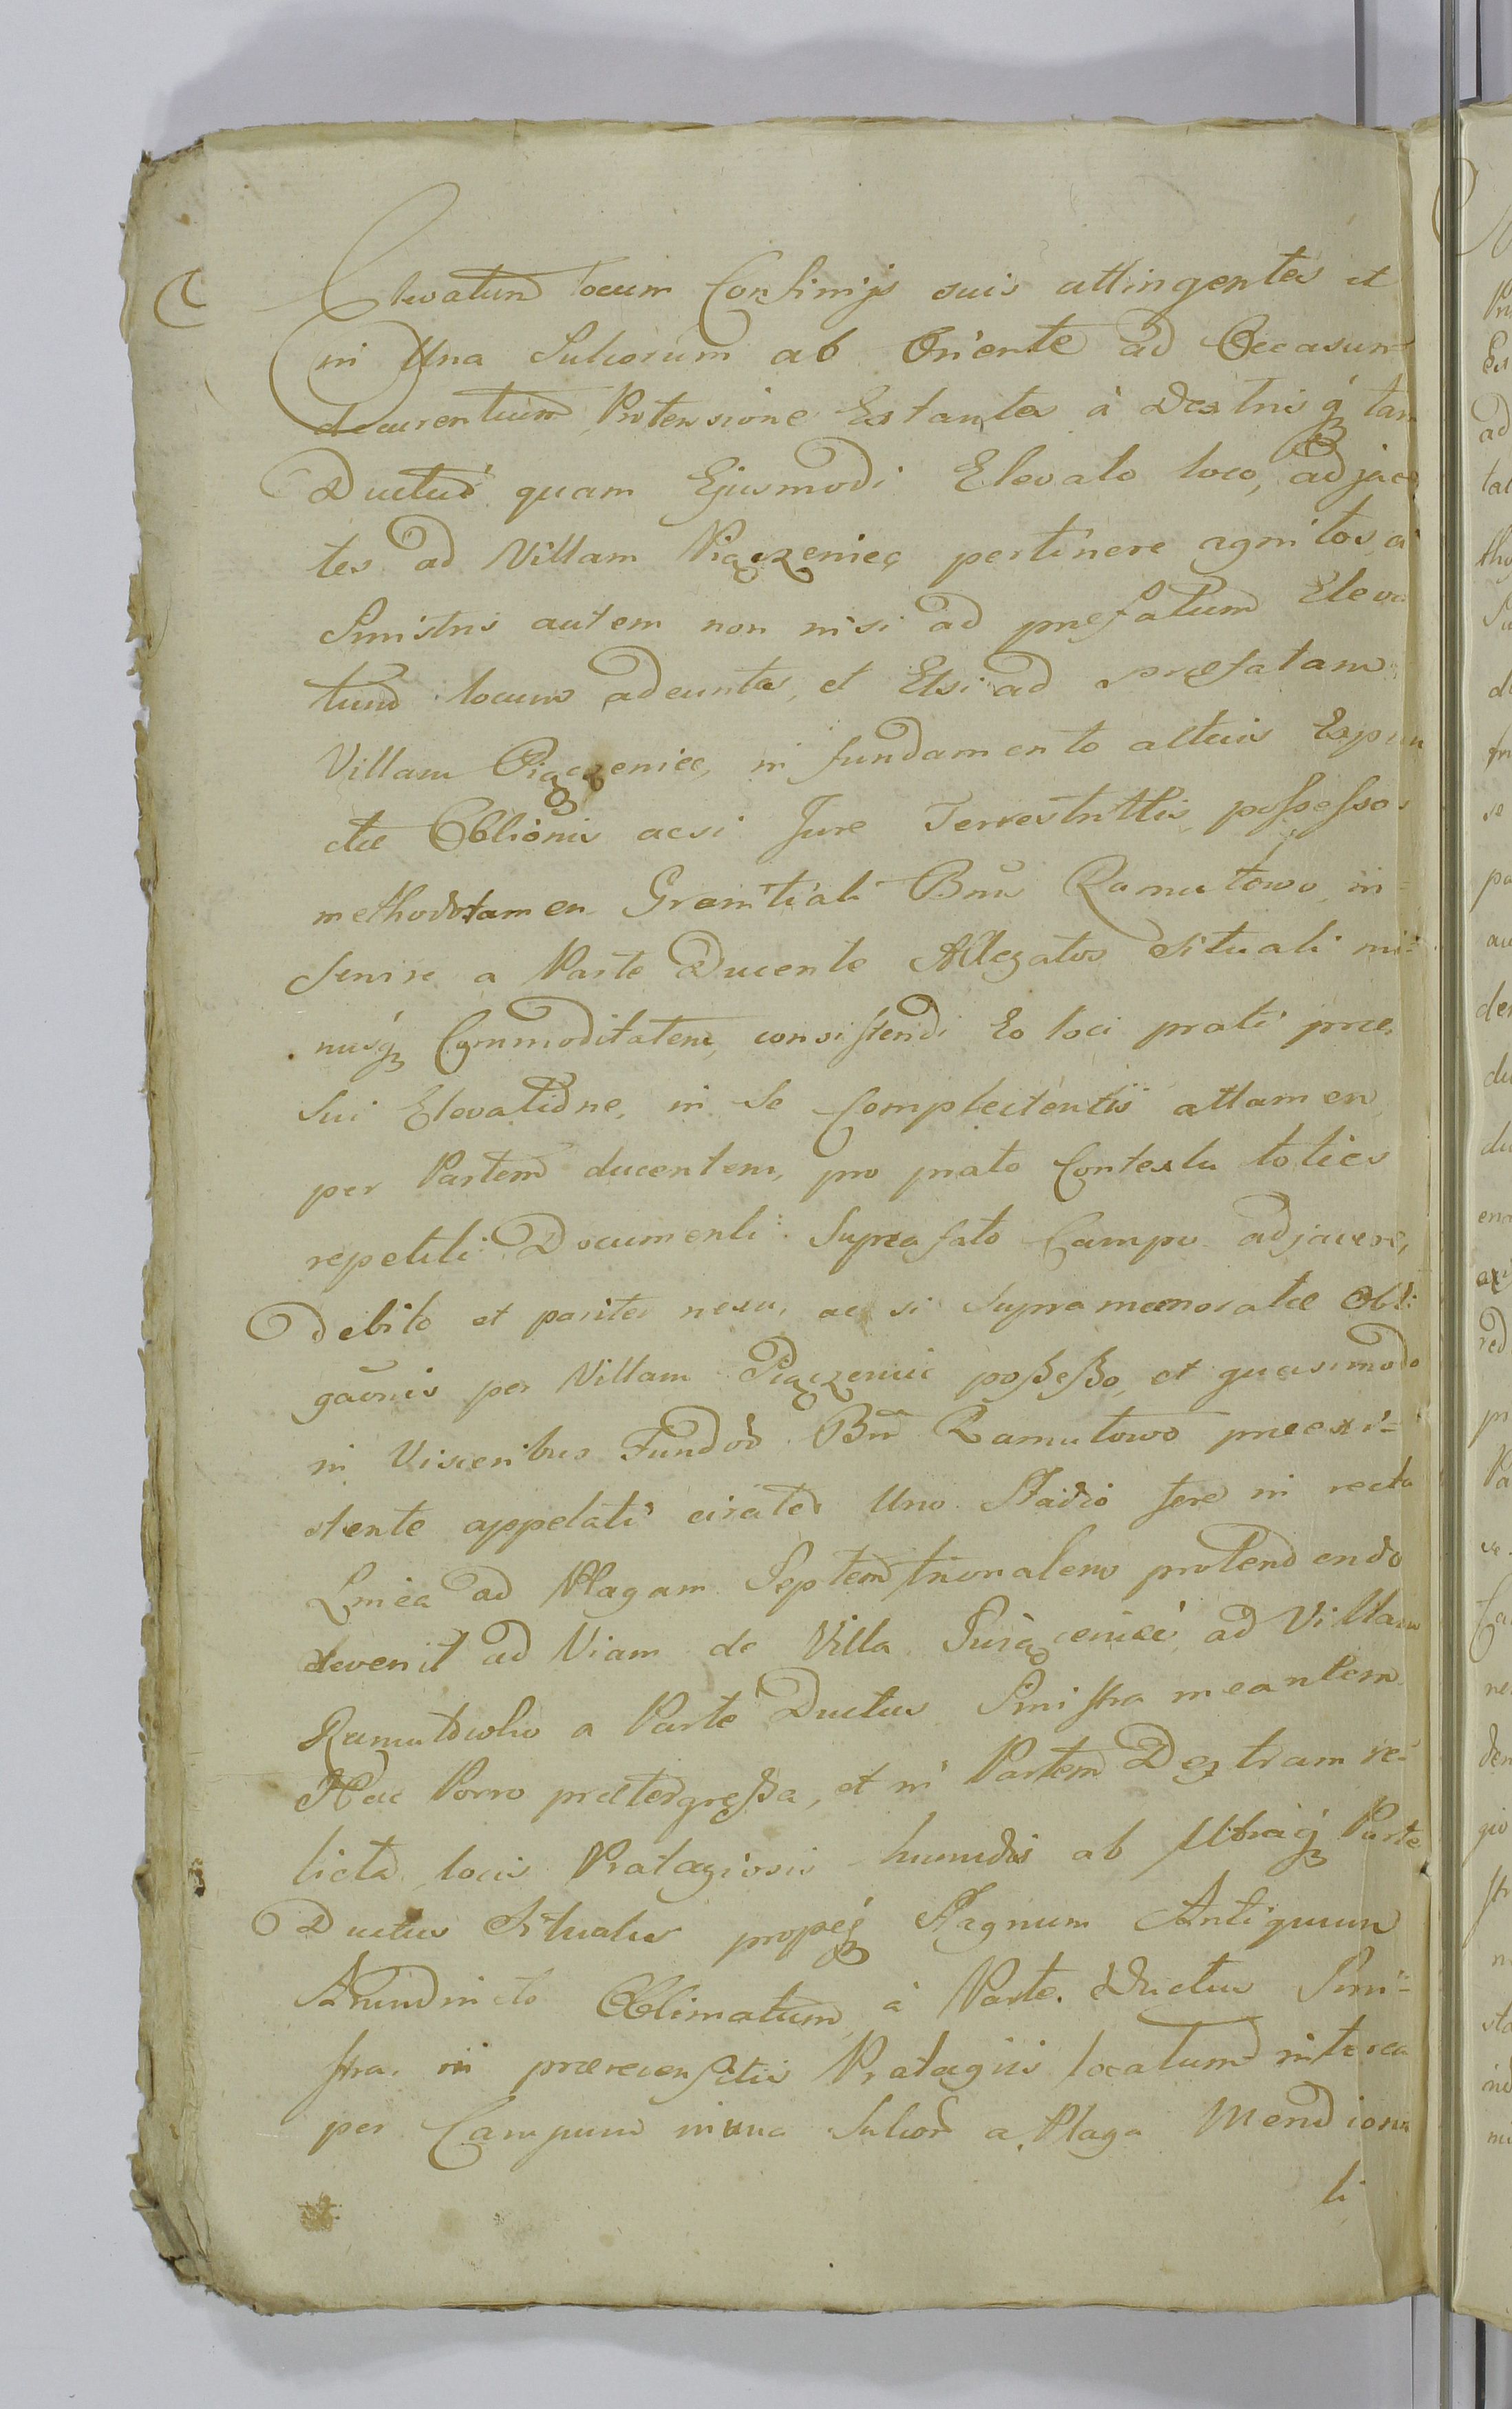 Elevatum locum Confinijs suis attingentes et
in Una Sulcorum ab Oriente ad Occasum
decurentium Protensione Estantes à Dextrisq́ tam
Ductus quam Ejusmodi Elevato loco, adjacen
tes ad Villam Piączeniec pertinere agnitos, a
Sinistris autem non nisi ad præfatum Eleva
tum locum adeuntes, et Etsi ad præfatam
Villam Piączeniec, in fundamento altius Expun
ctæ Oblionis acsi Jure Terrestrittis possessos
methodo tamen Granitiali Bnis Ramutowo in=
servire a Parte Ducente Allegatos situali mi=
nusq́ Commoditatem, consistendi Eo loci prati præ
sui Elevatione, in se Complectentis attamen
per Partem ducentem, pro prato Contextu toties
repetiti Documenti: Supra fato Campo adjacere,
Debito et pariter nexu, ac si supra memoratæ Obli
gaōnis per Villam Piączeniec possesso, et quasimodo
in Visceribus Fundor̃ Bnr̃ Ramutowo præexi=
stente appelati circiter Uno Stadio fere in recta
Linea ad Plagam Septemtrionalem protendendo
devenit ad Viam de Villa ad Villam
Ramutowko a Parte Ductus Sinistra meantem
Hac Porro prætergressa, et in Partem Dextram re=
licta, locis Pratagiosis humidis ab Utraq́ Parte
Ductus Situatis propeq́ Stagnum Antiquum
Arundineto Oblimatum, à Parte Ductus Sini=
stra, in prærecensitis Pratagiis locatum interea
per Campum in una Sulcor̃ a Plaga Meridiona
li